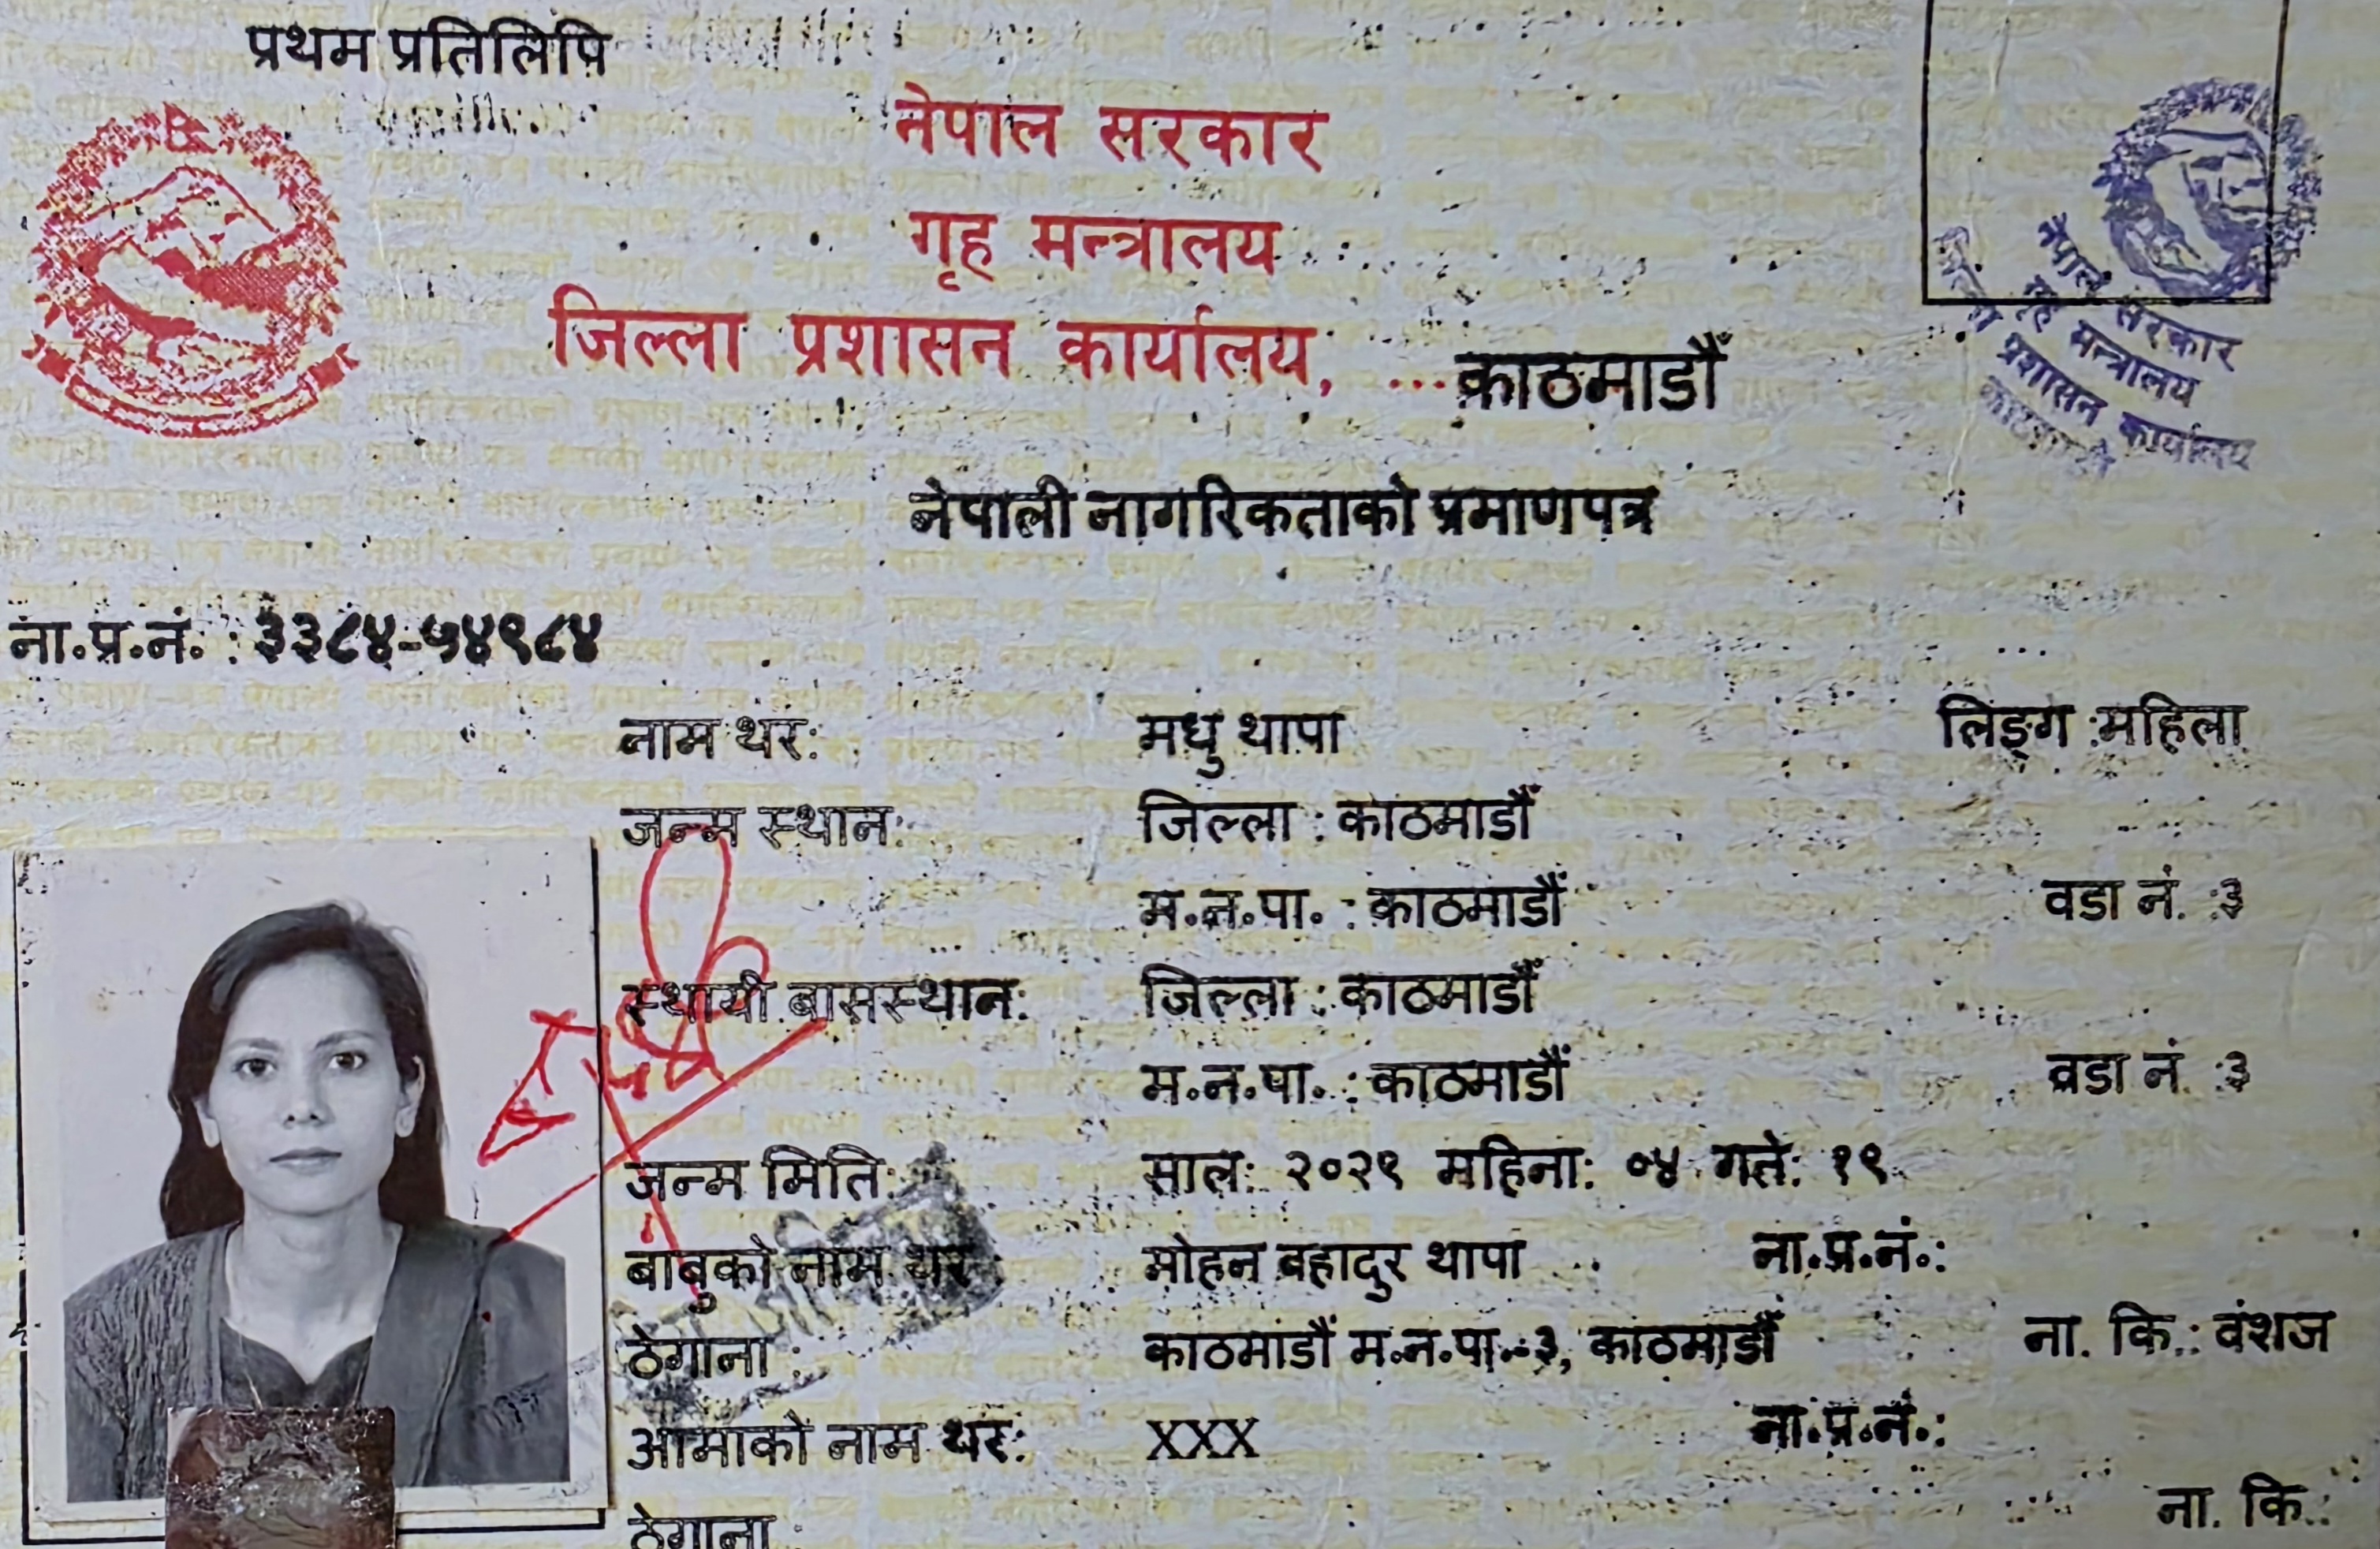 प्रथम प्रतिलिपि
नेपाल सरकार
गृह मन्त्रालय
जिल्ला प्रशासन कार्यालय, ... काठमाडौँ
नेपाल सरकार
गृह मन्त्रालय
प्रशासन कार्यालय
नेपाली नागरिकताको प्रमाणपत्र
ना.प्र.नं. : ३३८४-५४९८४
नाम थर: मधु थापा लिङ्ग :महिला
जन्म स्थान: जिल्ला : काठमाडौँ
म.न.पा. : काठमाडौँ वडा नं. :३
स्थायी बासस्थान: जिल्ला : काठमाडौँ
म.न.पा. : काठमाडौँ वडा नं. :३
जन्म मिति: साल: २०२९ महिना: ०४ गते: १९
बाबुको नाम थर : मोहन बहादुर थापा ना.प्र.नं.:
ठेगाना : काठमाडौँ म.न.पा.-३, काठमाडौँ ना. कि.: वंशज
आमाको नाम थर: XXX ना.प्र.नं.:
ठेगाना : ना. कि.: